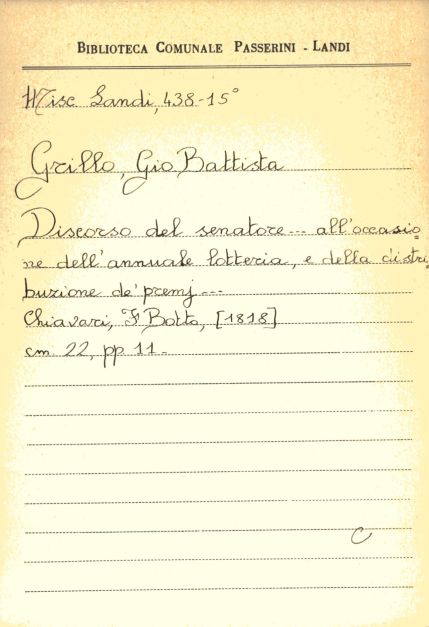 BIBLIOTECA COMUNALE PASSERINI - LANDI
Misc. Landi, 438-15°
Grillo, Gio Battista
Discorso del senatore... all'occasio
ne dell'annuale lotteria, e della distri
buzione de' premj...
Chiavari, F. Botto, [1818]
cm. 22, pp. 11.
C